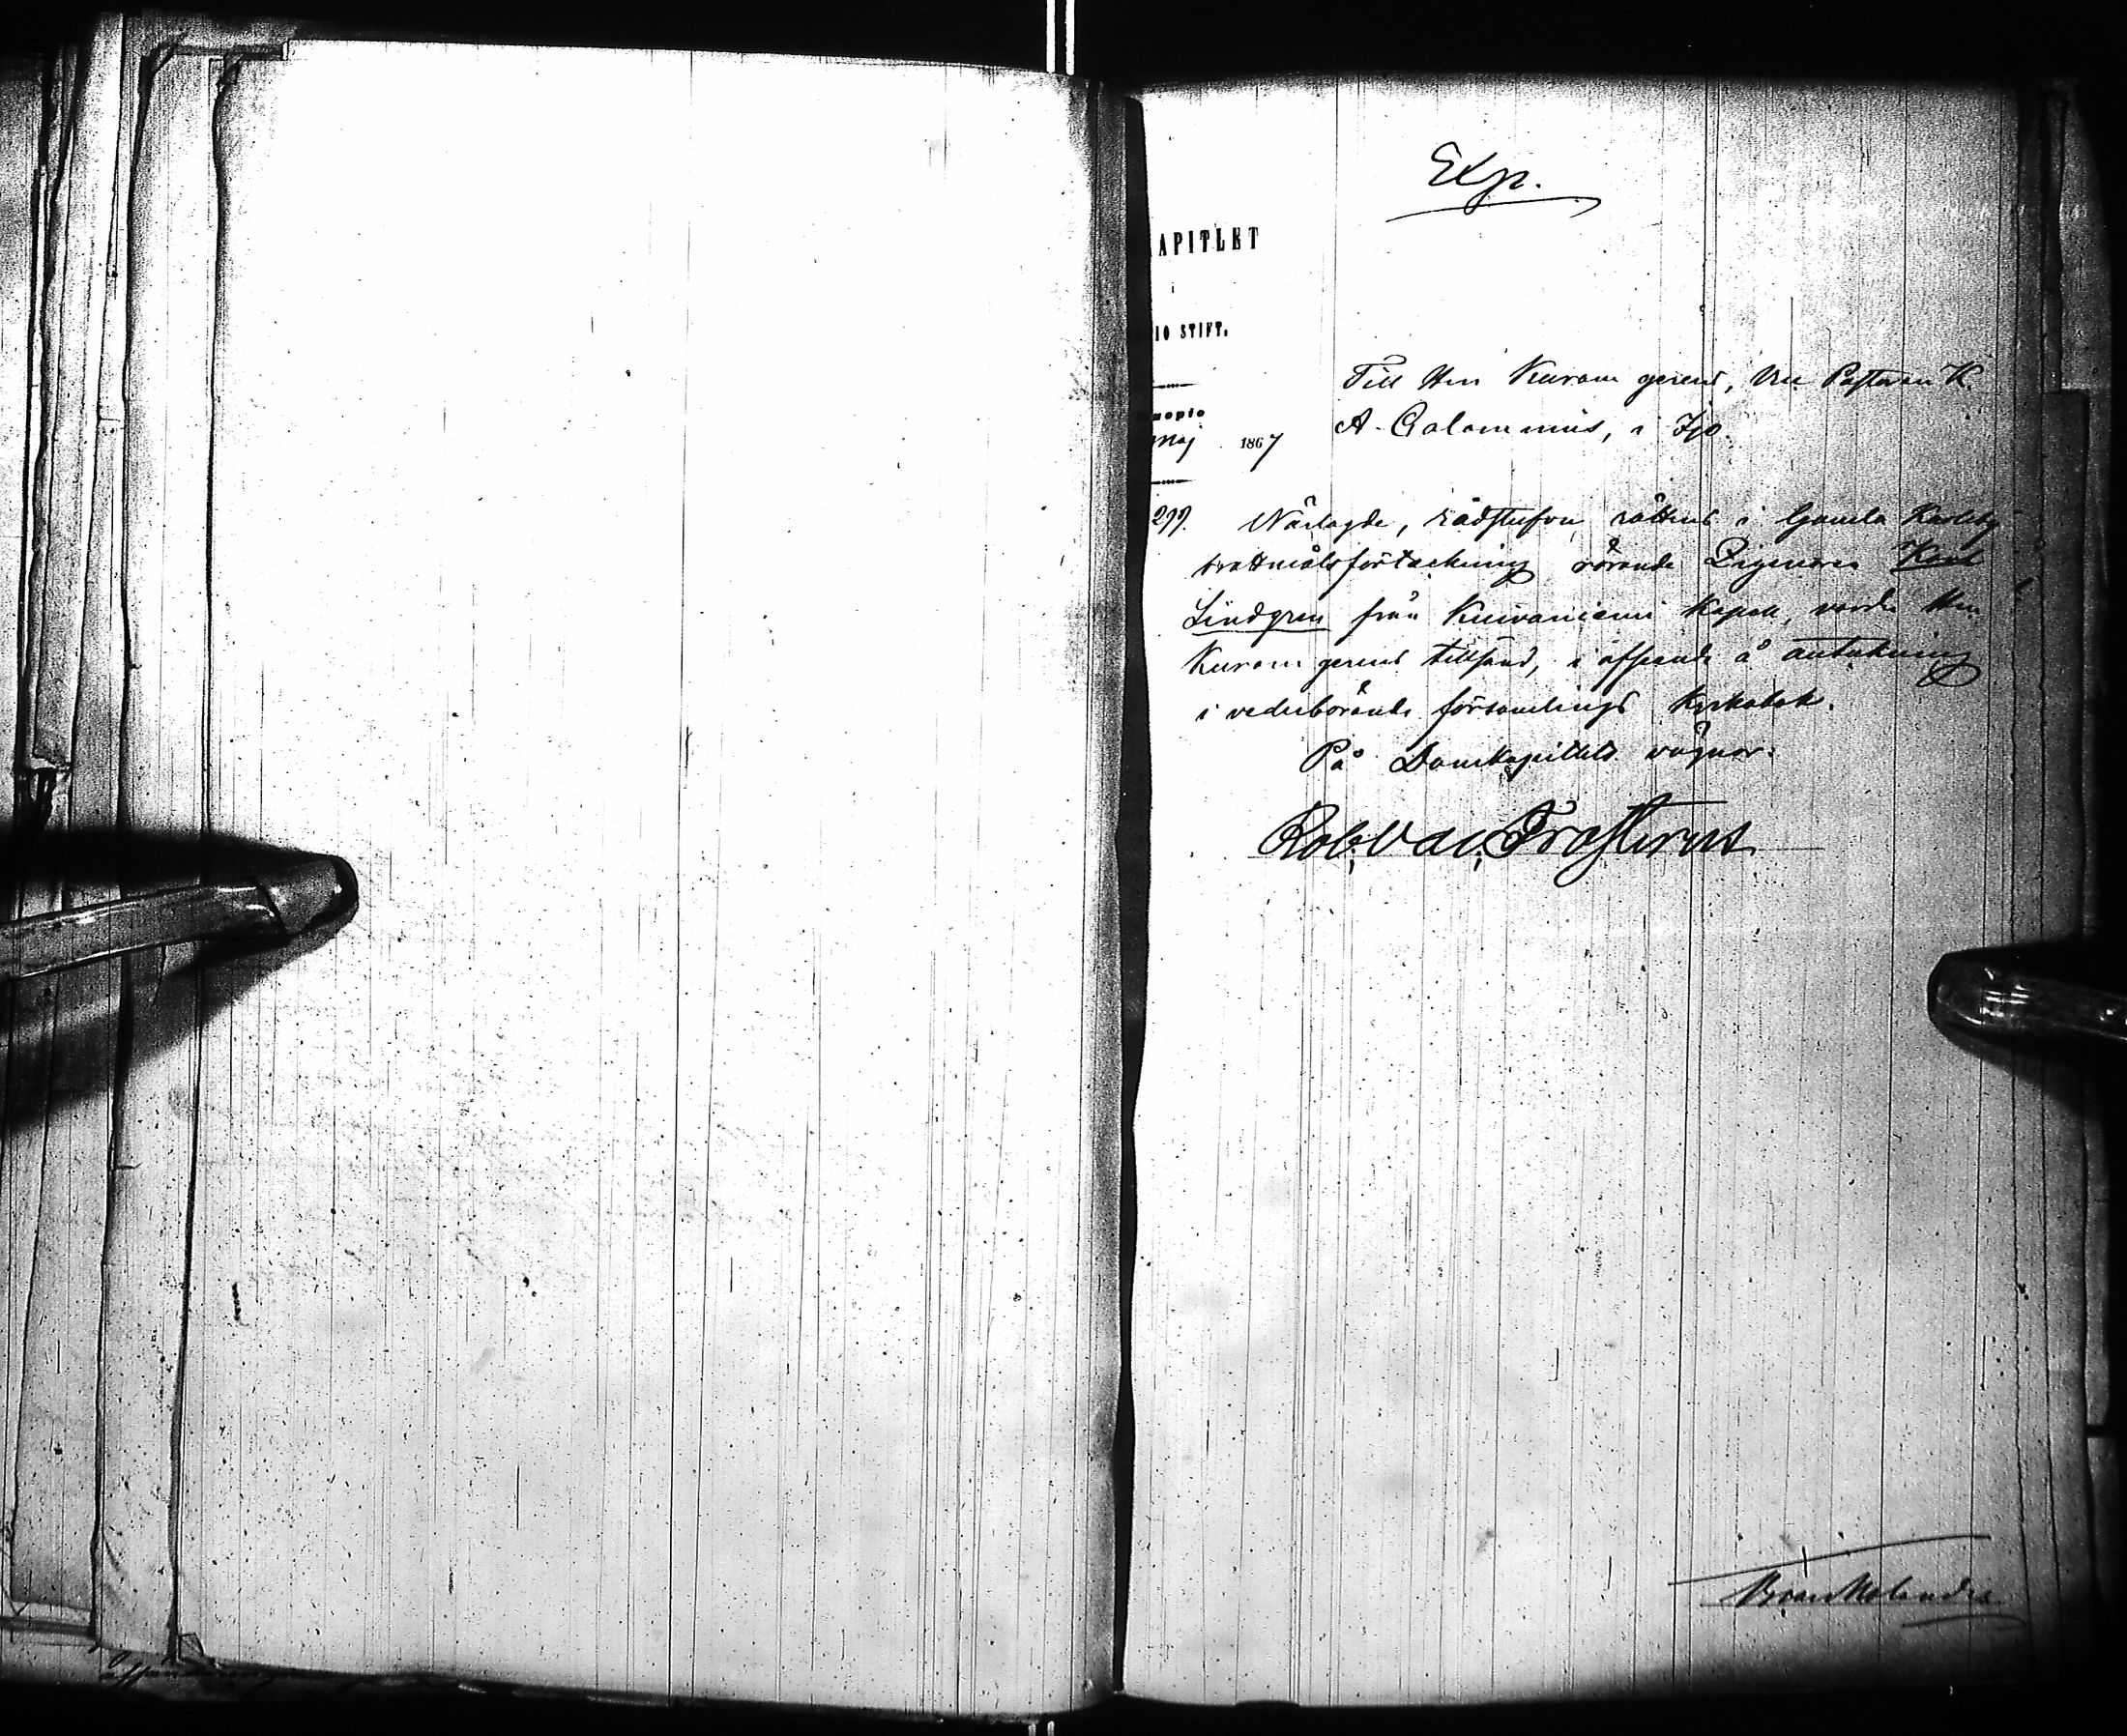 Exp.
APITLET
i
IO STIFT.
Till Hrr Kuram gerens, Vice Pastoren K.
uopio
A. Calamnius, i Ijo.
Maj 1867
299. Närlagde, rådstufvu rättens i Gamla Karleby
brottmålsförteckning rörande Zigenaren Karl
Lindgren från Kuivaniemi Kapell, varder Hrr
Kuram gerens tillsänd, i afseende å anteckning
i vederbörande församlings kyrkobok.
På Domkapitlets vägnar:
Rob. Val. Frosterus